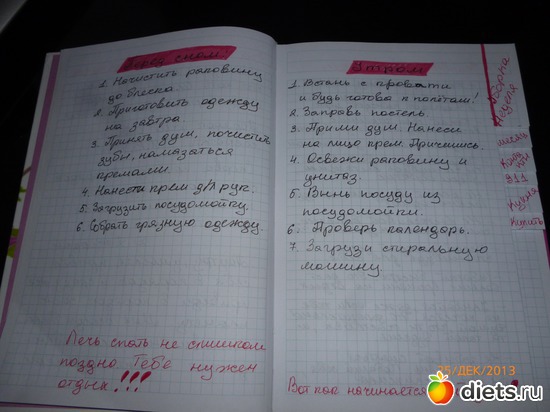 Перед сном.
1. Начистить раковину
до блеска.
2. Приготовить одежду
на завтра.
3. Принять душ, почистить
зубы, намазаться
кремами.
4. Нанести крем д/л рук.
5. Загрузить посудомойку.
6. Собрать грязную одежду.
Лечь спать не слишком
поздно Тебе нужен
отдых!!!
Завтрак
1. Встань с кровати
и будь готова к полётам!
2. Заправь постель.
3. Прими душ. Нанеси
на лицо крем. Причешись.
4. Освежи раковину и
унитаз.
5. Вынь посуду из
посудомойки.
6. Проверь календарь.
7. Загрузи стиральную
машину.
Вот как начинается
Уборка
Неделя
911
Кухня
Купить
25/ДЕК/2013
diets.ru